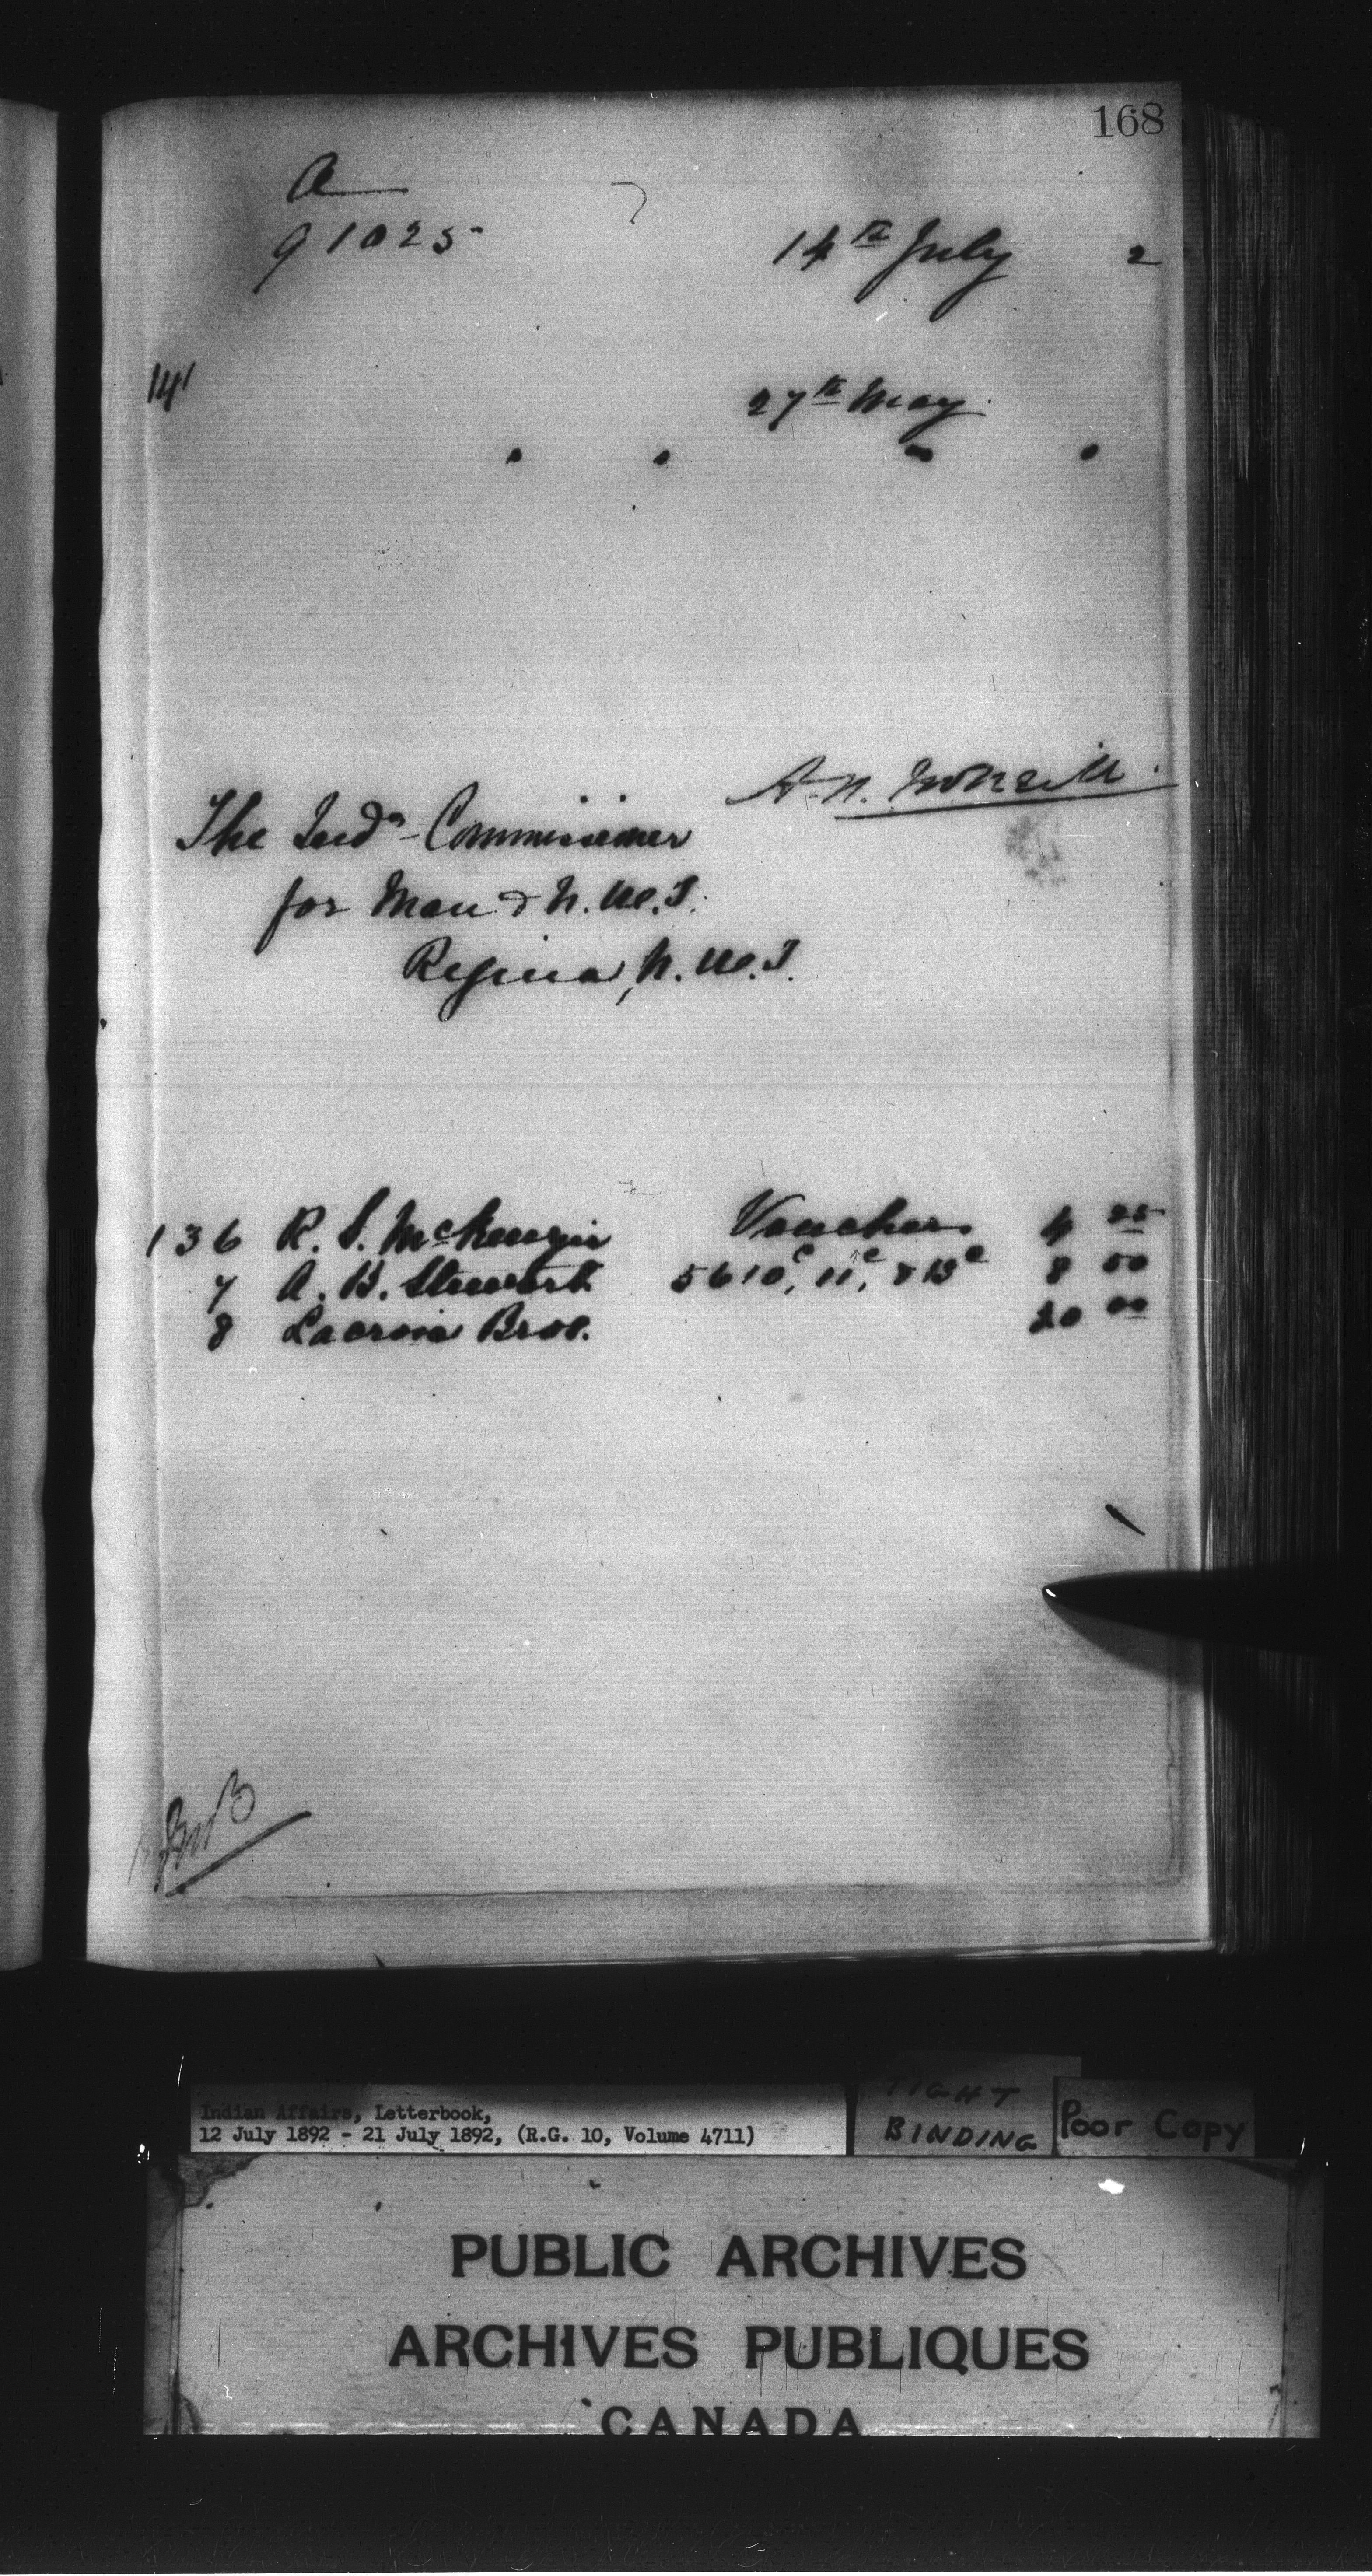 168
A
91025
14th July 2
141
27th May
A. N. McNeill
The Ind'n Commissioner
for Man & N.W.T.
Regina, N.W.T.
136 R. S. McKenzie Vouchers 4 25
7 A. B. Stewart 5610c, 11c, & 13c 8 50
8 Lacroix Bros. 20 00
Indian Affairs, Letterbook,
12 July 1892 - 21 July 1892, (R.G. 10, Volume 4711)
TIGHT
BINDING
Poor Copy
PUBLIC ARCHIVES
ARCHIVES PUBLIQUES
CANADA